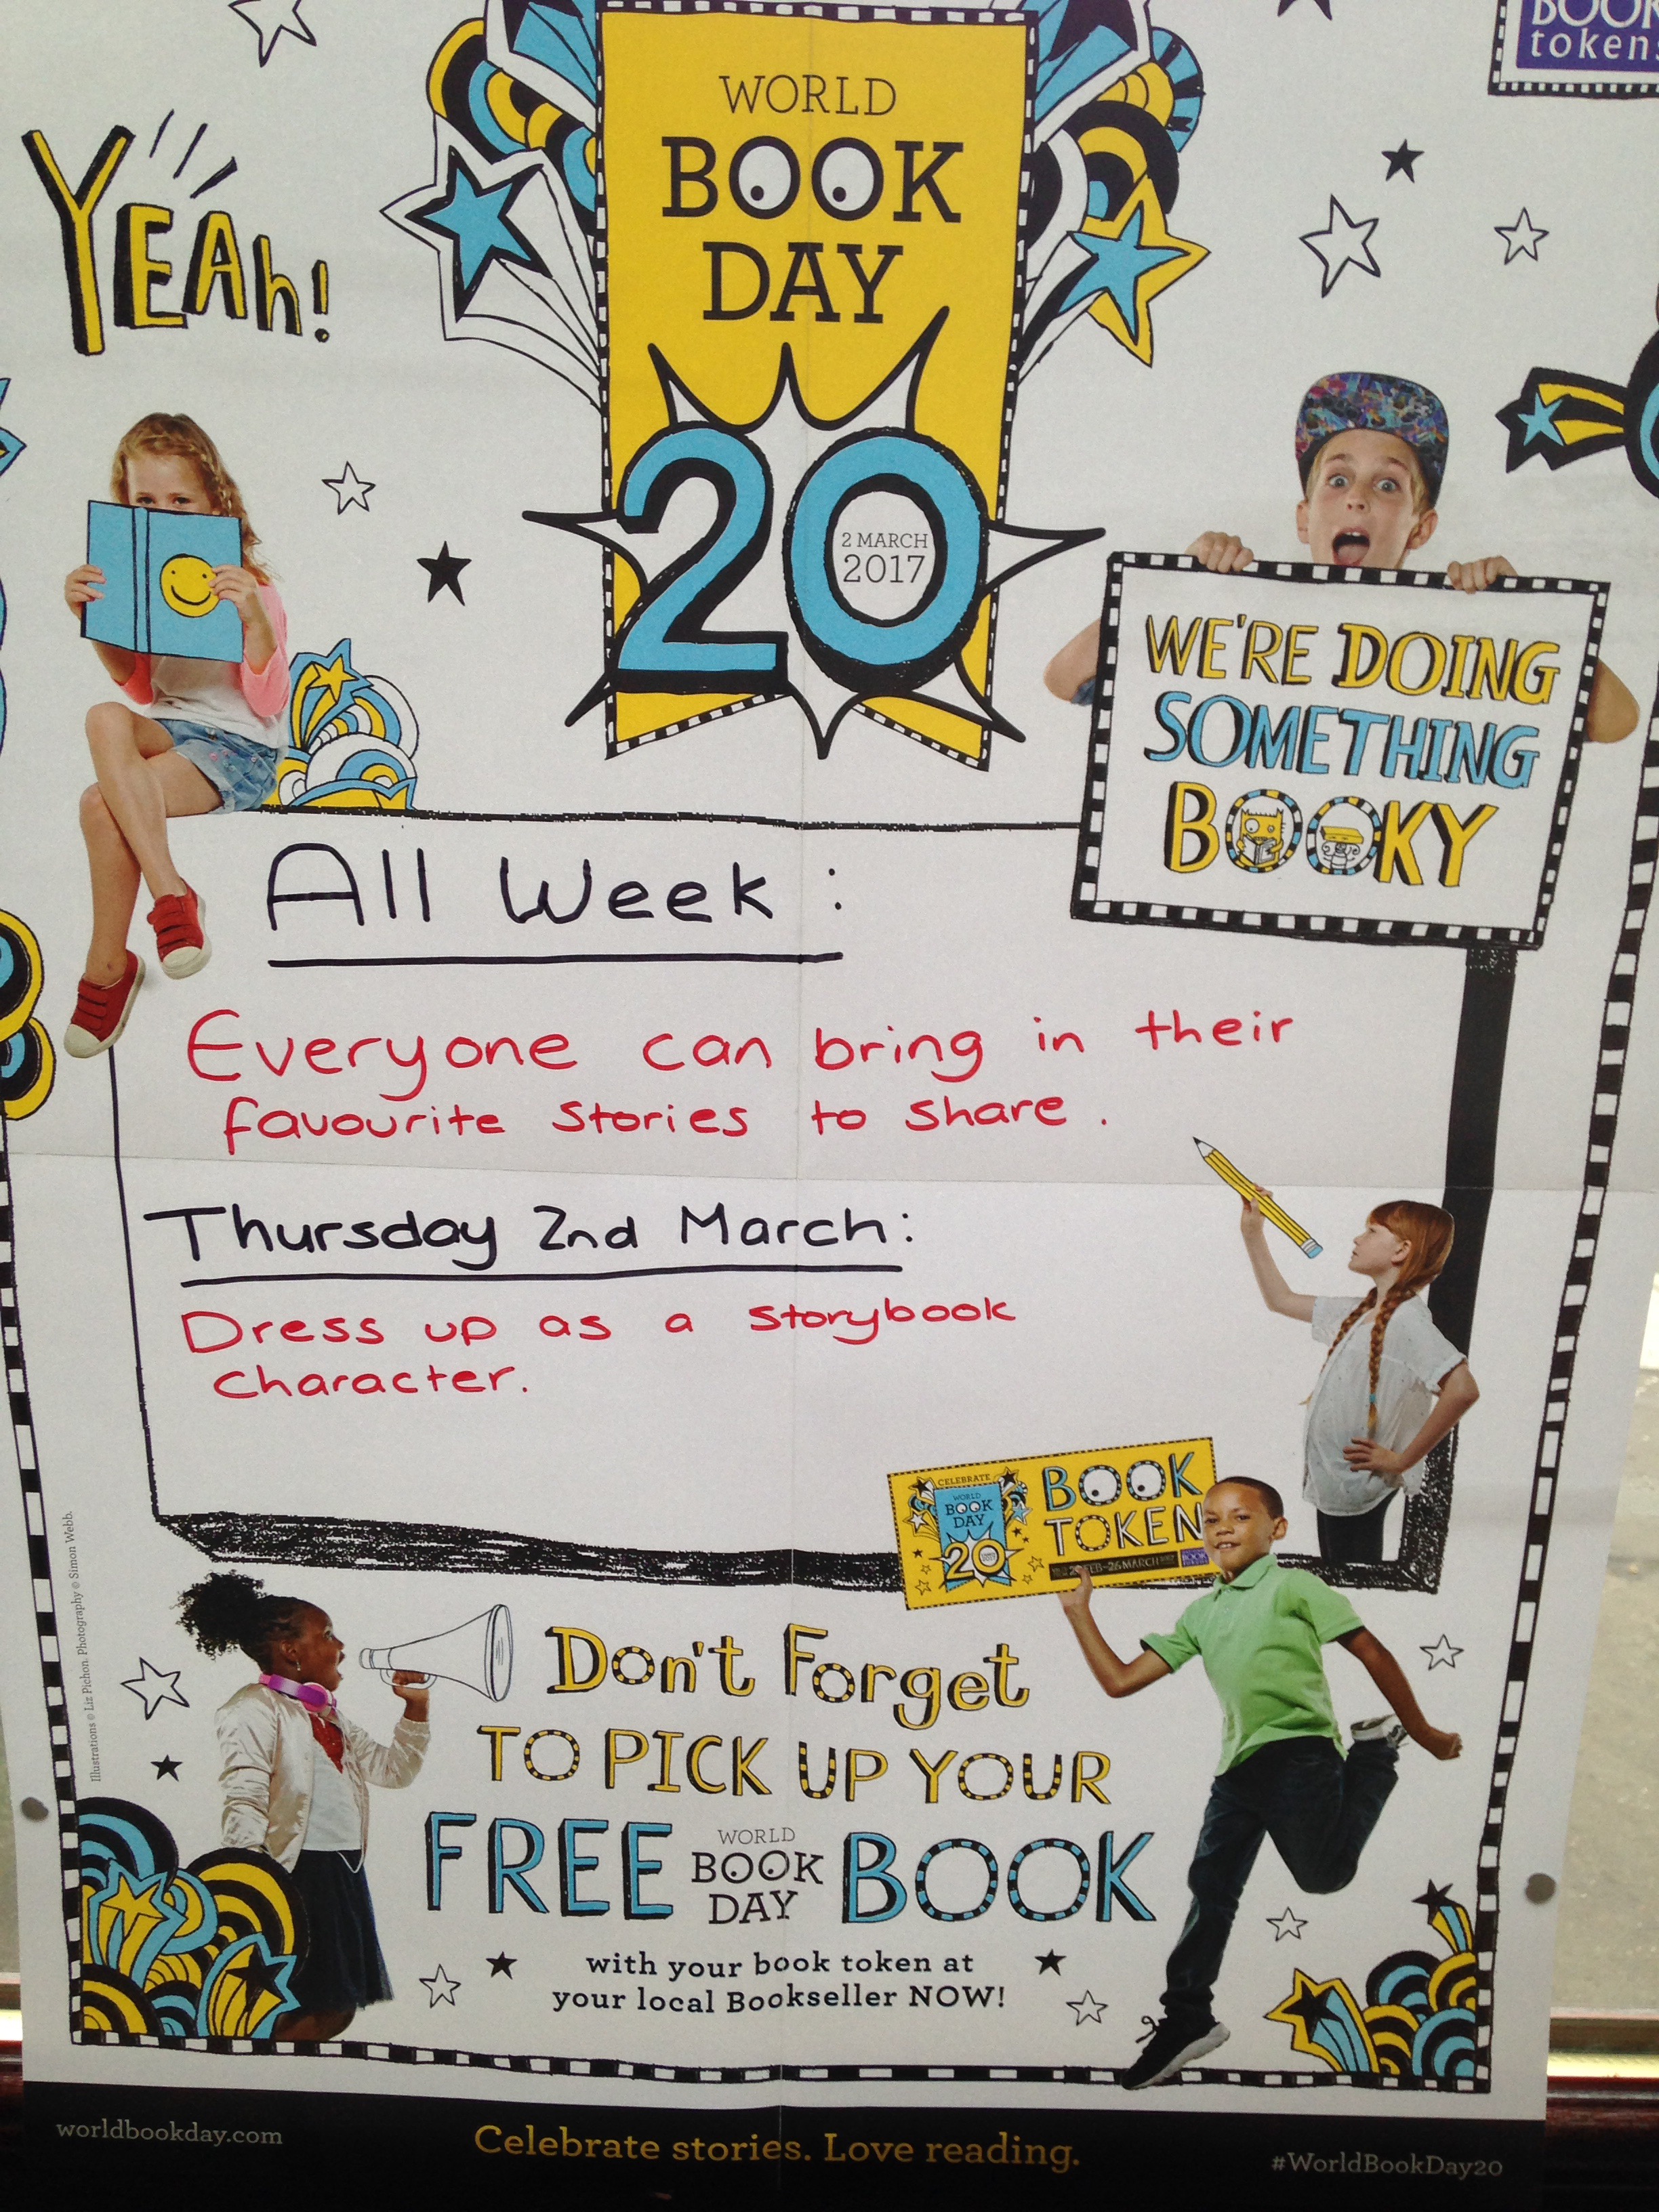 BOOK
tokens
YEAh!
WORLD
BOOK
DAY
20
2 MARCH
2017
WE'RE DOING
SOMETHING
BOOKY
All Week :
Everyone can bring in their
favourite stories to share .
Thursday 2nd March:
Dress up as a storybook
character.
CELEBRATE
WORLD
BOOK
DAY
20
BOOK
TOKEN
FEB-26 MARCH
Illustrations © Liz Pichon. Photography © Simon Webb.
Don't Forget
TO PICK UP YOUR
FREE WORLD BOOK DAY BOOK
with your book token at
your local Bookseller NOW!
worldbookday.com
Celebrate stories. Love reading.
#WorldBookDay20